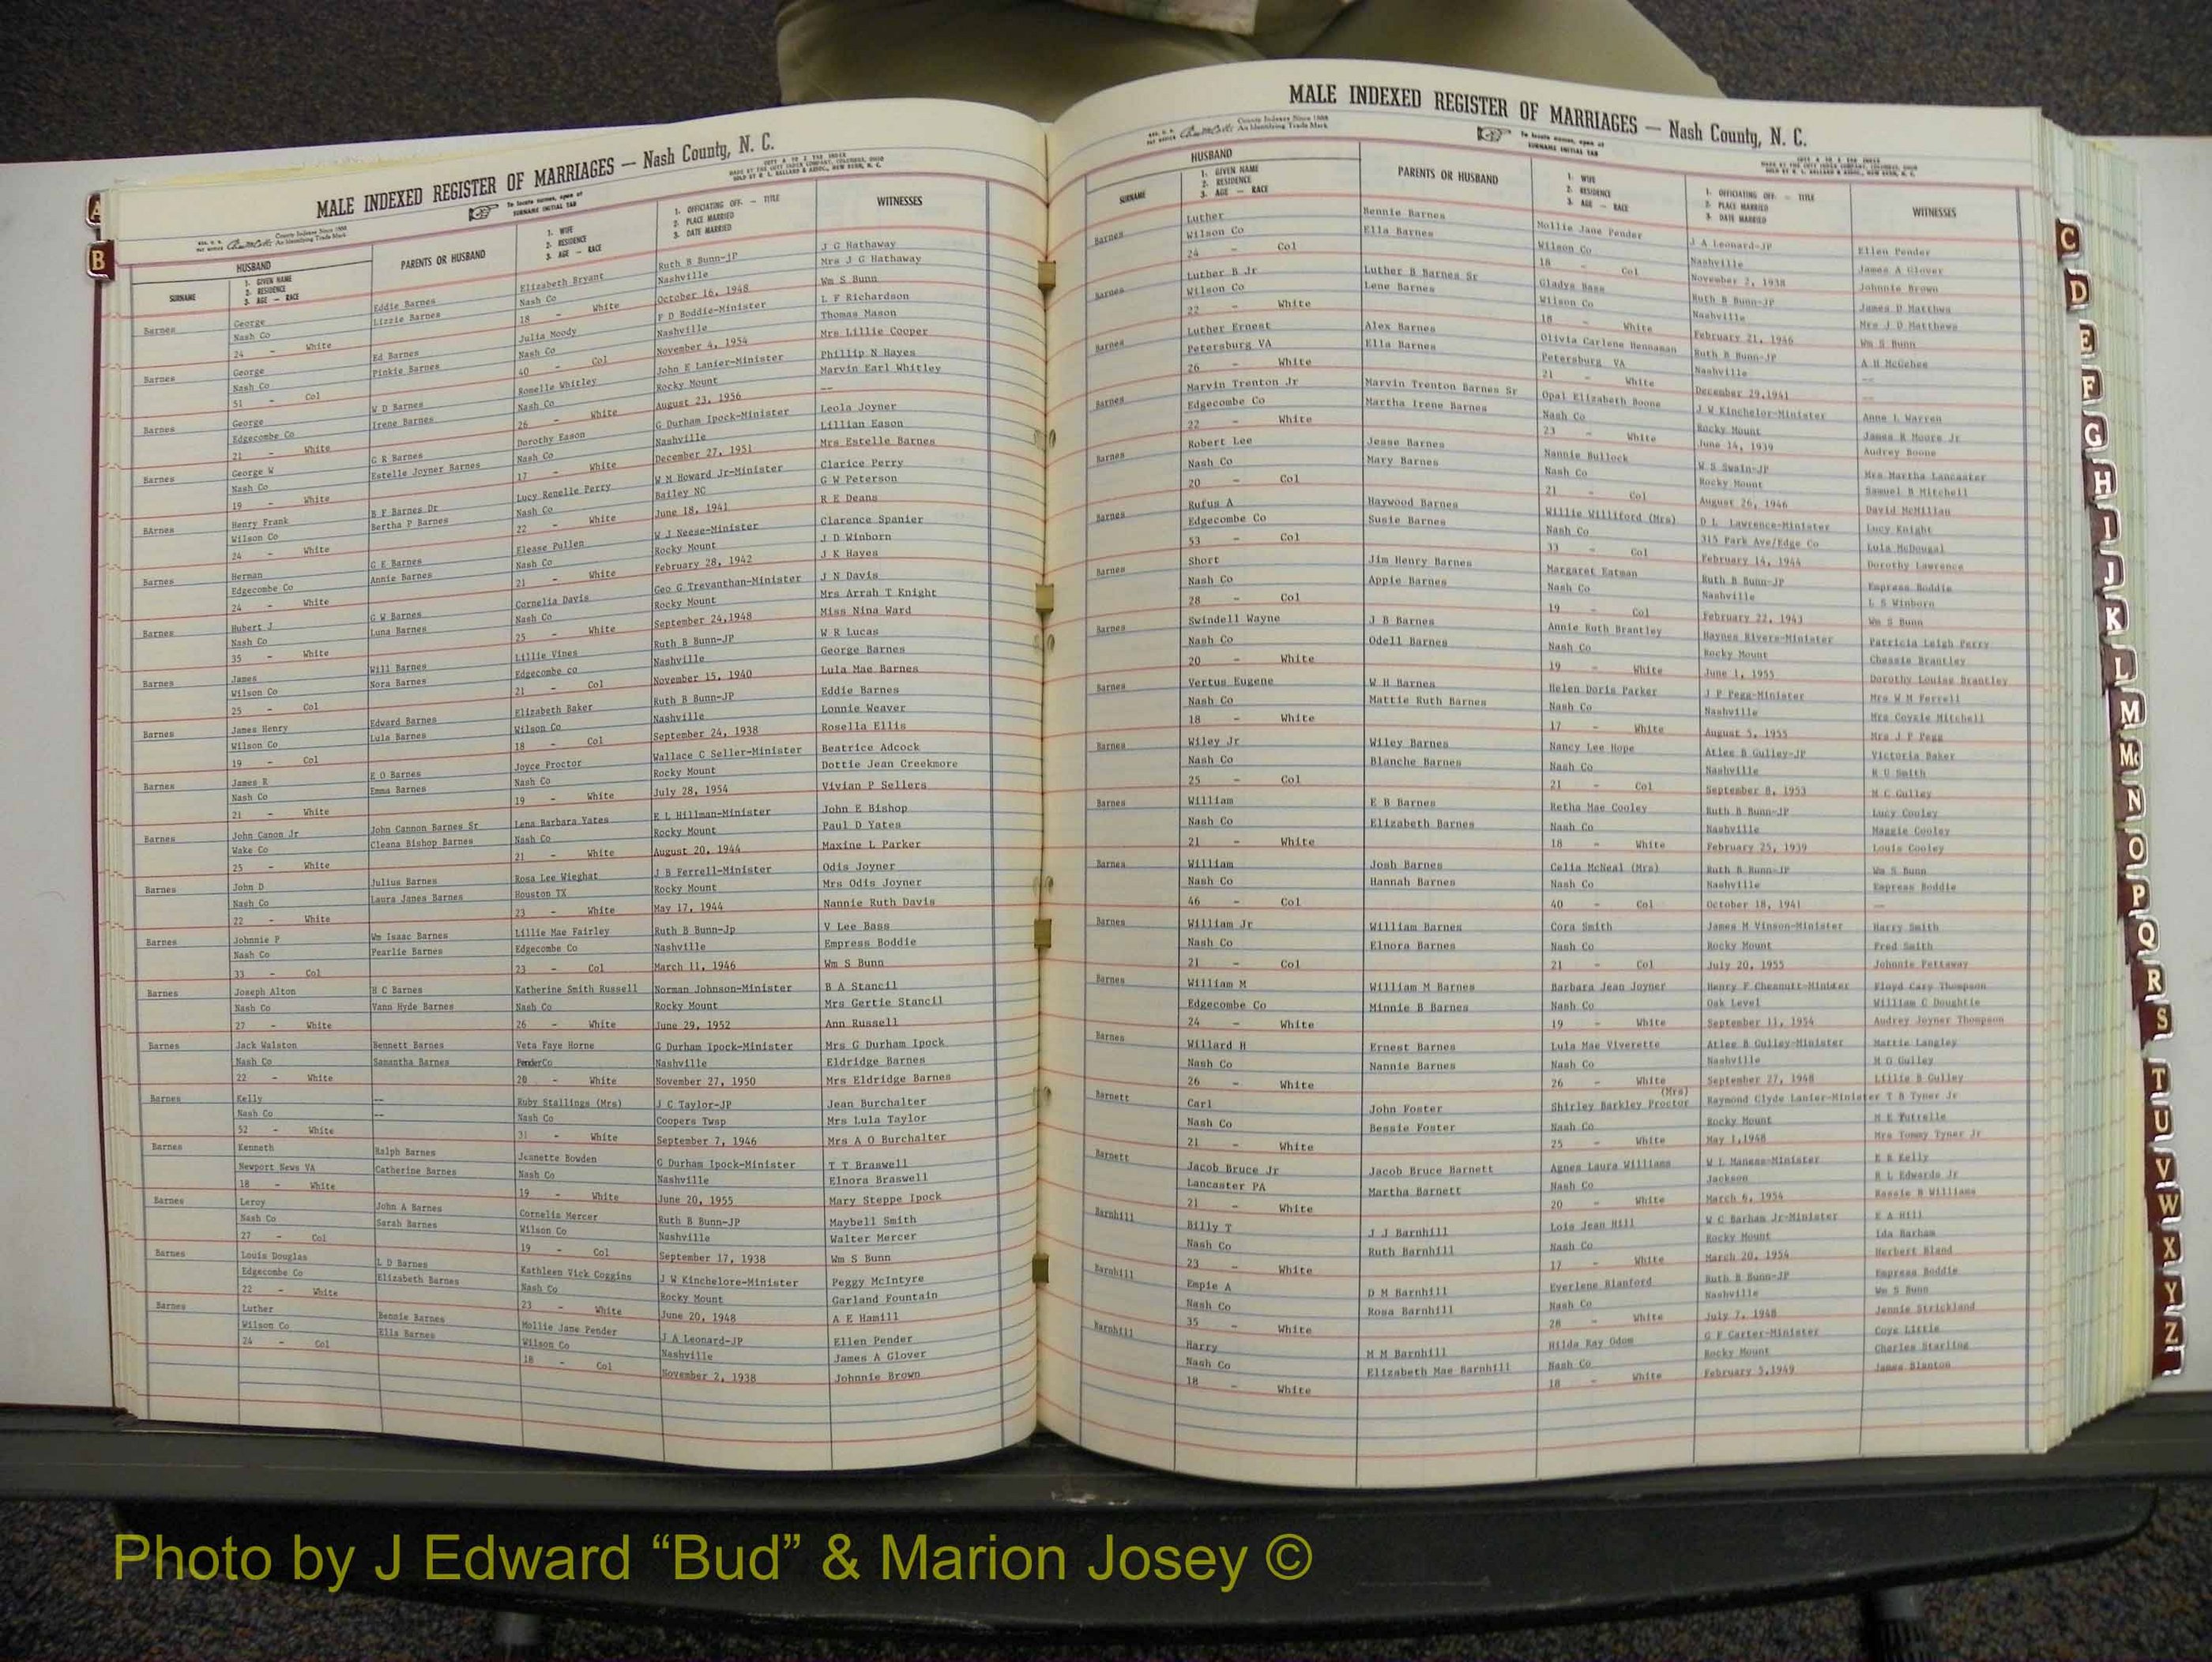 MALE INDEXED REGISTER OF MARRIAGES — Nash County, N. C.
To locate names, open at
SURNAME INITIAL TAB
County Indexes Since 1888
An Identifying Trade Mark
HUSBAND
SURNAME
1. GIVEN NAME
2. RESIDENCE
3. AGE — RACE
PARENTS OR HUSBAND
1. WIFE
2. RESIDENCE
3. AGE — RACE
1. OFFICIATING OFF. — TITLE
2. PLACE MARRIED
3. DATE MARRIED
WITNESSES
Barnes George Eddie Barnes Elizabeth Bryant Ruth B Bunn-JP J G Hathaway
Nash Co Lizzie Barnes Nash Co Nashville Mrs J G Hathaway
24 - White 18 - White October 16, 1948 Wm S Bunn
Barnes George Ed Barnes Julia Moody F D Boddie-Minister L F Richardson
Nash Co Pinkie Barnes Nash Co Nashville Thomas Mason
51 - Col 40 - Col November 4, 1954 Mrs Lillie Cooper
Barnes George W D Barnes Romelle Whitley John E Lanier-Minister Phillip N Hayes
Edgecombe Co Irene Barnes Nash Co Rocky Mount Marvin Earl Whitley
21 - White 26 - White August 23, 1956 --
Barnes George W G R Barnes Dorothy Eason G Durham Ipock-Minister Leola Joyner
Nash Co Estelle Joyner Barnes Nash Co Nashville Lillian Eason
19 - White 17 - White December 27, 1951 Mrs Estelle Barnes
BArnes Henry Frank B F Barnes Dr Lucy Renelle Perry W M Howard Jr-Minister Clarice Perry
Wilson Co Bertha P Barnes Nash Co Bailey NC G W Peterson
24 - White 22 - White June 18, 1941 R E Deans
Barnes Herman G E Barnes Elease Pullen W J Neese-Minister Clarence Spanier
Edgecombe Co Annie Barnes Nash Co Rocky Mount J D Winborn
24 - White 21 - White February 28, 1942 J K Hayes
Barnes Hubert J G W Barnes Cornelia Davis Geo G Trevanthan-Minister J N Davis
Nash Co Luna Barnes Nash Co Rocky Mount Mrs Arrah T Knight
35 - White 25 - White September 24,1948 Miss Nina Ward
Barnes James Will Barnes Lillie Vines Ruth B Bunn-JP W R Lucas
Wilson Co Nora Barnes Edgecombe co Nashville George Barnes
25 - Col 21 - Col November 15, 1940 Lula Mae Barnes
Barnes James Henry Edward Barnes Elizabeth Baker Ruth B Bunn-JP Eddie Barnes
Wilson Co Lula Barnes Wilson Co Nashville Lonnie Weaver
19 - Col 18 - Col September 24, 1938 Rosella Ellis
Barnes James R E O Barnes Joyce Proctor Wallace C Seller-Minister Beatrice Adcock
Nash Co Emma Barnes Nash Co Rocky Mount Dottie Jean Creekmore
21 - White 19 - White July 28, 1954 Vivian P Sellers
Barnes John Canon Jr John Cannon Barnes Sr Lena Barbara Yates E L Hillman-Minister John E Bishop
Wake Co Cleana Bishop Barnes Nash Co Rocky Mount Paul D Yates
25 - White 21 - White August 20, 1944 Maxine L Parker
Barnes John D Julius Barnes Rosa Lee Wieghat J B Ferrell-Minister Odis Joyner
Nash Co Laura Janes Barnes Houston TX Rocky Mount Mrs Odis Joyner
22 - White 23 - White May 17, 1944 Nannie Ruth Davis
Barnes Johnnie P Wm Isaac Barnes Lillie Mae Fairley Ruth B Bunn-Jp V Lee Bass
Nash Co Pearlie Barnes Edgecombe Co Nashville Empress Boddie
33 - Col 23 - Col March 11, 1946 Wm S Bunn
Barnes Joseph Alton H C Barnes Katherine Smith Russell Norman Johnson-Minister B A Stancil
Nash Co Vann Hyde Barnes Nash Co Rocky Mount Mrs Gertie Stancil
27 - White 26 - White June 29, 1952 Ann Russell
Barnes Jack Walston Bennett Barnes Veta Faye Horne G Durham Ipock-Minister Mrs G Durham Ipock
Nash Co Samantha Barnes PenderCo Nashville Eldridge Barnes
22 - White 20 - White November 27, 1950 Mrs Eldridge Barnes
Barnes Kelly -- Ruby Stallings (Mrs) J C Taylor-JP Jean Burchalter
Nash Co -- Nash Co Coopers Twsp Mrs Lula Taylor
52 - White 31 - White September 7, 1946 Mrs A O Burchalter
Barnes Kenneth Ralph Barnes Jeanette Bowden G Durham Ipock-Minister T T Braswell
Newport News VA Catherine Barnes Nash Co Nashville Elnora Braswell
18 - White 19 - White June 20, 1955 Mary Steppe Ipock
Barnes Leroy John A Barnes Cornelis Mercer Ruth B Bunn-JP Maybell Smith
Nash Co Sarah Barnes Wilson Co Nashville Walter Mercer
27 - Col 19 - Col September 17, 1938 Wm S Bunn
Barnes Louis Douglas L D Barnes Kathleen Vick Coggins J W Kinchelore-Minister Peggy McIntyre
Edgecombe Co Elizabeth Barnes Nash Co Rocky Mount Garland Fountain
22 - White 23 - White June 20, 1948 A E Hamill
Barnes Luther Bennie Barnes Mollie Jane Pender J A Leonard-JP Ellen Pender
Wilson Co Ella Barnes Wilson Co Nashville James A Glover
24 Col 18 - Col November 2, 1938 Johnnie Brown
MALE INDEXED REGISTER OF MARRIAGES — Nash County, N. C.
To locate names, open at
SURNAME INITIAL TAB
County Indexes Since 1888
An Identifying Trade Mark
HUSBAND
SURNAME
1. GIVEN NAME
2. RESIDENCE
3. AGE — RACE
PARENTS OR HUSBAND
1. WIFE
2. RESIDENCE
3. AGE — RACE
1. OFFICIATING OFF. — TITLE
2. PLACE MARRIED
3. DATE MARRIED
WITNESSES
Barnes Luther Bennie Barnes Mollie Jane Pender J A Leonard-JP Ellen Pender
Wilson Co Ella Barnes Wilson Co Nashville James A Glover
24 - Col 18 - Col November 2, 1938 Johnnie Brown
Barnes Luther B Jr Luther B Barnes Sr Gladys Bass Ruth B Bunn-JP James D Matthws
Wilson Co Lene Barnes Wilson Co Nashville Mrs J D Matthews
22 - White 18 - White February 21, 1946 Wm S Bunn
Barnes Luther Ernest Alex Barnes Olivia Carlene Hennaman Ruth B Bunn-JP A H McGehee
Petersburg VA Ella Barnes Petersburg VA Nashville --
26 - White 21 - White December 29,1941 --
Barnes Marvin Trenton Jr Marvin Trenton Barnes Sr Opal Elizabeth Boone J W Kinchelor-Minister Anne L Warren
Edgecombe Co Martha Irene Barnes Nash Co Rocky Mount James R Moore Jr
22 - White 23 - White June 14, 1939 Audrey Boone
Barnes Robert Lee Jesse Barnes Nannie Bullock W S Swain-JP Mrs Martha Lancaster
Nash Co Mary Barnes Nash Co Rocky Mount Samuel B Mitchell
20 - Col 21 - Col August 26, 1946 David McMillan
Barnes Rufus A Haywood Barnes Willie Williford (Mrs) D L Lawrence-Minister Lucy Knight
Edgecombe Co Susie Barnes Nash Co 315 Park Ave/Edge Co Lula McDougal
53 - Col 33 - Col February 14, 1944 Dorothy Lawrence
Barnes Short Jim Henry Barnes Margaret Eatman Ruth B Bunn-JP Empress Boddie
Nash Co Appie Barnes Nash Co Nashville L S Winborn
28 - Col 19 - Col February 22, 1943 Wm S Bunn
Barnes Swindell Wayne J B Barnes Annie Ruth Brantley Haynes Rivers-Minister Patricia Leigh Perry
Nash Co Odell Barnes Nash Co Rocky Mount Chessie Brantley
20 - White 19 - White June 1, 1955 Dorothy Louise Brantley
Barnes Vertus Eugene W H Barnes Helen Doris Parker J P Pegg-Minister Mrs W M Ferrell
Nash Co Mattie Ruth Barnes Nash Co Nashville Mrs Coysie Mitchell
18 - White 17 - White August 5, 1955 Mrs J P Pegg
Barnes Wiley Jr Wiley Barnes Nancy Lee Hope Atles B Gulley-JP Victoria Baker
Nash Co Blanche Barnes Nash Co Nashville R U Smith
25 - Col 21 - Col September 8, 1953 M C Gulley
Barnes William E B Barnes Retha Mae Cooley Ruth B Bunn-JP Lucy Cooley
Nash Co Elizabeth Barnes Nash Co Nashville Maggie Cooley
21 - White 18 - White February 25, 1939 Louis Cooley
Barnes William Josh Barnes Celia McNeal (Mrs) Ruth B Bunn-JP Wm S Bunn
Nash Co Hannah Barnes Nash Co Nashville Empress Boddie
46 - Col 40 - Col October 18, 1941 --
Barnes William Jr William Barnes Cora Smith James M Vinson-Minister Harry Smith
Nash Co Elnora Barnes Nash Co Rocky Mount Fred Smith
21 - Col 21 - Col July 20, 1955 Johnnie Pettaway
Barnes William M William M Barnes Barbara Jean Joyner Henry F Chesnutt-Minister Floyd Cary Thompson
Edgecombe Co Minnie B Barnes Nash Co Oak Level William C Doughtie
24 - White 19 - White September 11, 1954 Audrey Joyner Thompson
Barnes Willard H Ernest Barnes Lula Mae Viverette Atles B Gulley-Minister Mattie Langley
Nash Co Nannie Barnes Nash Co Nashville M O Gulley
26 - White 26 - White September 27, 1948 Lillie B Gulley
(Mrs)
Barnett Carl John Foster Shirley Barkley Proctor Raymond Clyde Lanier-Minister T B Tyner Jr
Nash Co Bessie Foster Nash Co Rocky Mount M E Tuttelle
21 - White 25 - White May 1,1948 Mrs Tommy Tyner Jr
Barnett Jacob Bruce Jr Jacob Bruce Barnett Agnes Laura Williams W L Maness-Minister E B Kelly
Lancaster PA Martha Barnett Nash Co Jackson R L Edwards Jr
21 - White 20 - White March 6, 1954 Bessie B Williams
Barnhill Billy T J J Barnhill Lois Jean Hill W C Barham Jr-Minister E A Hill
Nash Co Ruth Barnhill Nash Co Rocky Mount Ida Barham
23 - White 17 - White March 20, 1954 Herbert Bland
Barnhill Empie A D M Barnhill Everlene Blanford Ruth B Bunn-JP Empress Boddie
Nash Co Rosa Barnhill Nash Co Nashville Wm S Bunn
35 - White 28 - White July 7, 1948 Jennie Strickland
Barnhill Harry M M Barnhill Hilda Ray Odom G F Carter-Minister Coys Little
Nash Co Elizabeth Mae Barnhill Nash Co Rocky Mount Charles Starling
18 - White 18 - White February 5,1949 James Blanton
A
B
C
D
E
F
G
H
I
J
K
L
M
Mc
N
O
P
Q
R
S
T
U
V
W
X
Y
Z
Photo by J Edward “Bud” & Marion Josey ©